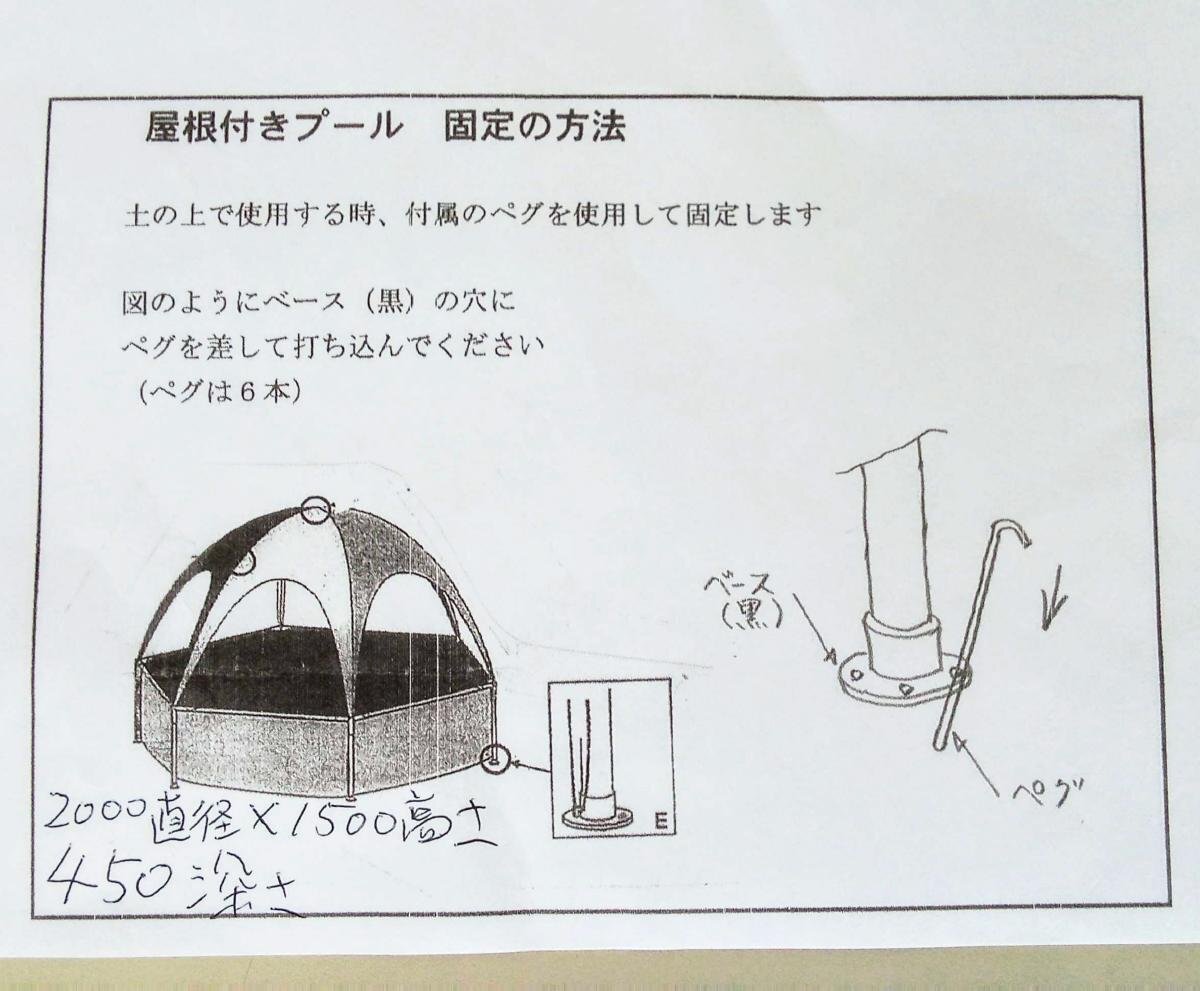 屋根付きプール　固定の方法
土の上で使用する時、付属のペグを使用して固定します
図のようにベース（黒）の穴に
ペグを差して打ち込んでください
（ペグは６本）
ベース
（黒）
ペグ
E
2000直径×1500高さ
450深さ